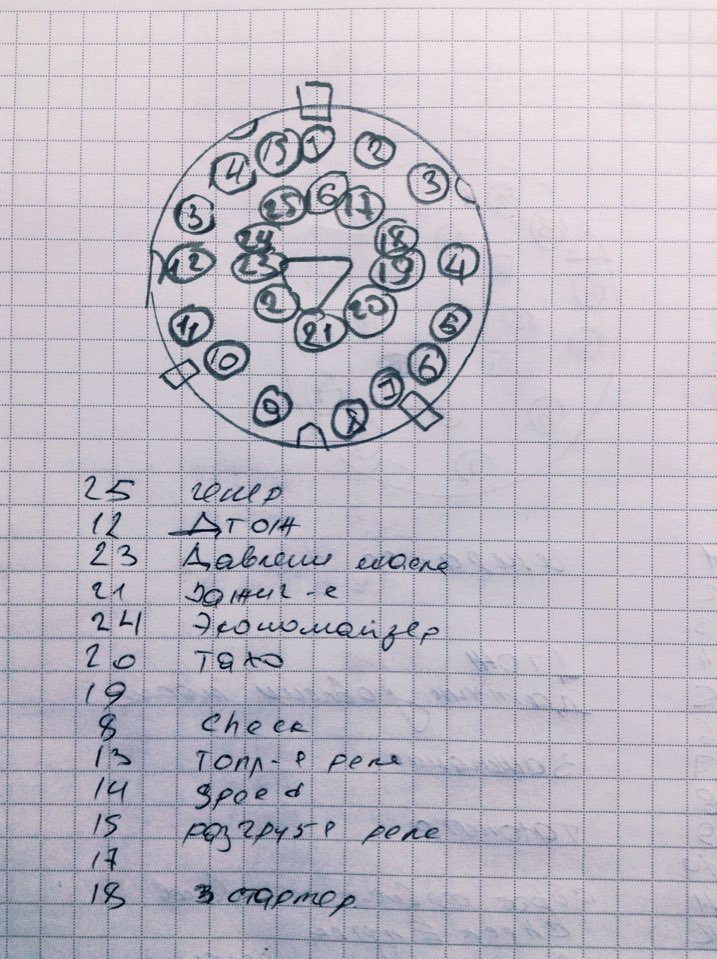 15 1 2
4 3
25 6 17
3
24 18
12 23 19 4
2 20
11 21 5
10 6
9 8 7
25 генер
12 ДТОЖ
23 Давлени масла
21 Зажиг-е
24 Экономайзер
20 тахо
19
8 check
13 топл-е реле
14 speed
15 разгруз-е реле
17
18 стартер